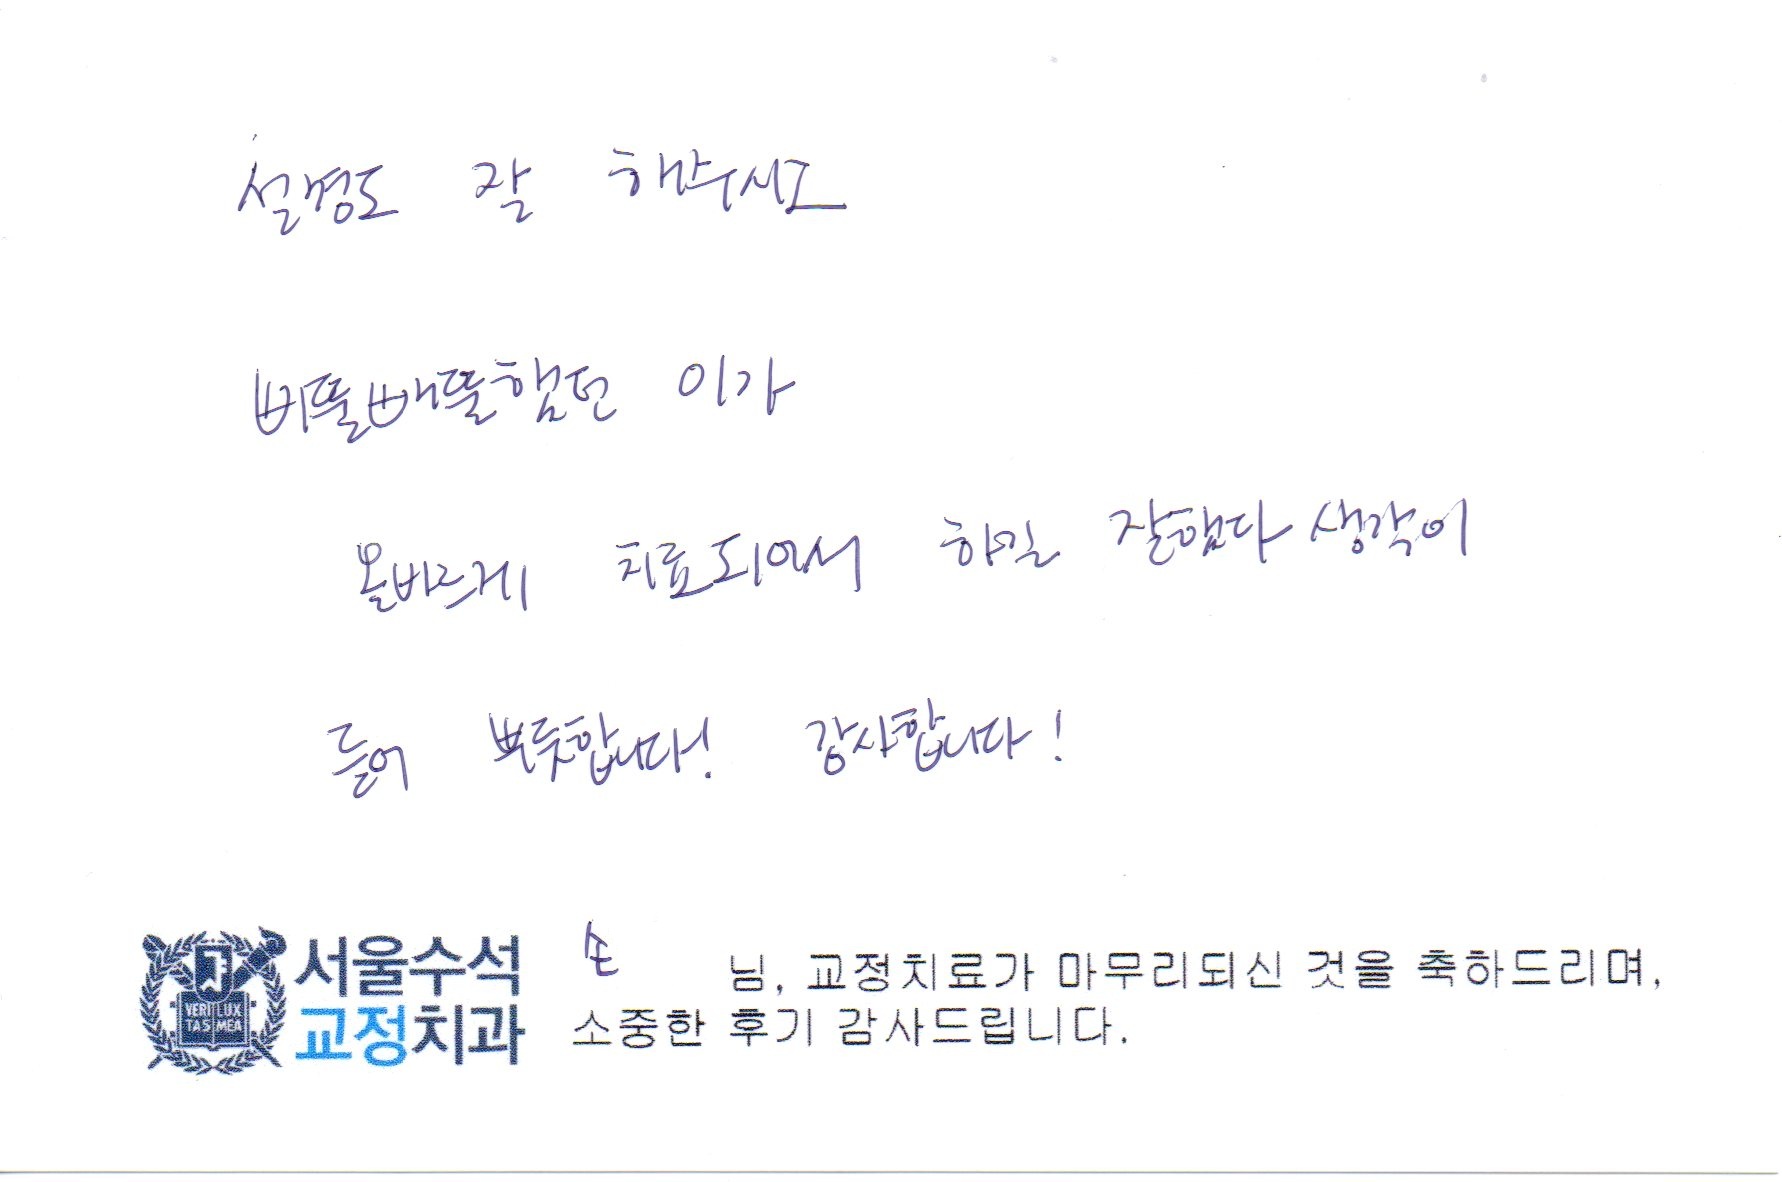 설경도 잘 해주시고
삐뚤빼뚤했던 이가
올바르게 치료되어서 하길 잘했다 생각이
들어 뿌듯합니다! 감사합니다!
서울수석
교정치과
VERI LUX
TAS MEA
손 님, 교정치료가 마무리되신 것을 축하드리며,
소중한 후기 감사드립니다.